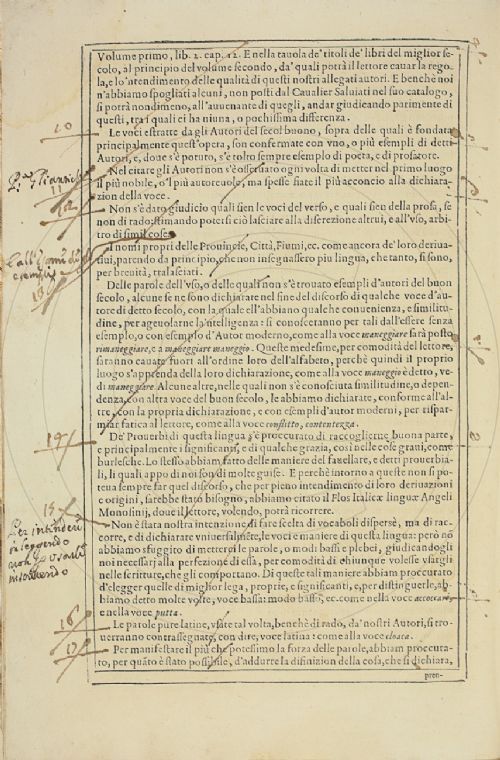 Volume primo, lib. 2. cap. 12. E nella tauola de' titoli de' libri del miglior se-
colo, al principio del volume secondo, da' quali potrà il lettore cauar la rego-
la, e lo'ntendimento delle qualità di questi nostri allegati autori. E benchè noi
n'abbiamo spogliati alcuni, non posti dal Caualier Saluiati nel suo catalogo,
si potrà nondimeno, all'auuenante di quegli, andar giudicando parimente di
questi, tra i quali ci ha niuna, o pochissima differenza.
10
Le voci estratte da gli Autori del secol buono, sopra delle quali è fondata
principalmente quest'opera, son confermate con vno, o più esempli di detti
Autori, e, doue s'è potuto, s'è tolto sempre esemplo di poeta, e di prosatore.
11
Nel citare gli Autori non s'è osseruato ogni volta di metter nel primo luogo
il più nobile, o'l più autoreuole, ma spesse fiate il più acconcio alla dichiara-
zion della voce.
12
Non s'è dato giudicio quali sien le voci del verso, e quali sien della prosa, se
non di rado: stimando potersi ciò lasciare alla discrezione altrui, e all'vso, arbi-
tro di simil cose.
I nomi propri delle Prouincie, Città, Fiumi, ec. come ancora de' loro deriua-
tiui, parendo da principio, che non insegnassero piu lingua, che tanto, si sono,
per breuità, tralasciati.
Delle parole dell'vso, o delle quali non s'è trouato esempli d'autori del buon
secolo, alcune se ne sono dichiarate nel fine del discorso di qualche voce d'au-
tore di detto secolo, con la quale ell'abbiano qualche conuenienza, e similitu-
dine, per ageuolarne la'ntelligenza: si conosceranno per tali dall'essere senza
esemplo, o con esemplo d'Autor moderno, come alla voce maneggiare sarà posto
rimaneggiare, e a maneggiare maneggio. Queste medesime, per comodità del lettore,
saranno cauate fuori all'ordine loro dell'alfabeto, perchè quindi il proprio
luogo s'apprenda della loro dichiarazione, come alla voce maneggio è detto, ve-
di maneggiare. Alcune altre, nelle quali non s'è conosciuta similitudine, o depen-
denza, con altra voce del buon secolo, le abbiamo dichiarate, conforme all'al-
tre, con la propria dichiarazione, e con esempli d'autor moderni, per rispar-
miar fatica al lettore, come alla voce conflitto, contentezza.
De' Prouerbi di questa lingua s'è proccurato di raccoglierne buona parte,
e principalmente i significanti, e di qualche grazia, così nelle cose graui, come
burlesche. Lo stesso abbiam fatto delle maniere del fauellare, e detti prouerbia-
li, li quali appo di noi son di molte guise. E perchè intorno a queste non si po-
teua sempre far quel discorso, che per pieno intendimento di loro deriuazioni
e origini, sarebbe stato bisogno, abbiamo citato il Flos Italicæ linguæ Angeli
Monosinij, doue il lettore, volendo, potrà ricorrere.
15
Per intendersi
leggendo
non p usarle
scriuendo
Non è stata nostra intenzione di fare scelta di vocaboli dispersè, ma di rac-
corre, e di dichiarare vniuersalmente, le voci e maniere di questa lingua: però nō
abbiamo sfuggito di metterci le parole, o modi bassi e plebei, giudicandogli
noi necessarj alla perfezion di essa, per comodità di chiunque volesse vsargli
nelle scritture, che gli comportano. Di queste tali maniere abbiam proccurato
d'elegger quelle di miglior lega, proprie, e significanti, e, per distinguerle, ab-
biamo detto molte volte, voce bassa: modo basso, ec. come nella voce accoccare,
e nella voce putta.
16
Le parole pure latine, vsate tal volta, benchè di rado, da' nostri Autori, si tro-
uerranno contrassegnate, con dire, voce latina: come alla voce cloaca.
17
Per manifestare il più che potessimo la forza delle parole, abbiam proccura-
to, per quāto è stato possibile, d'addurre la difinizion della cosa, che si dichiara,
pren-